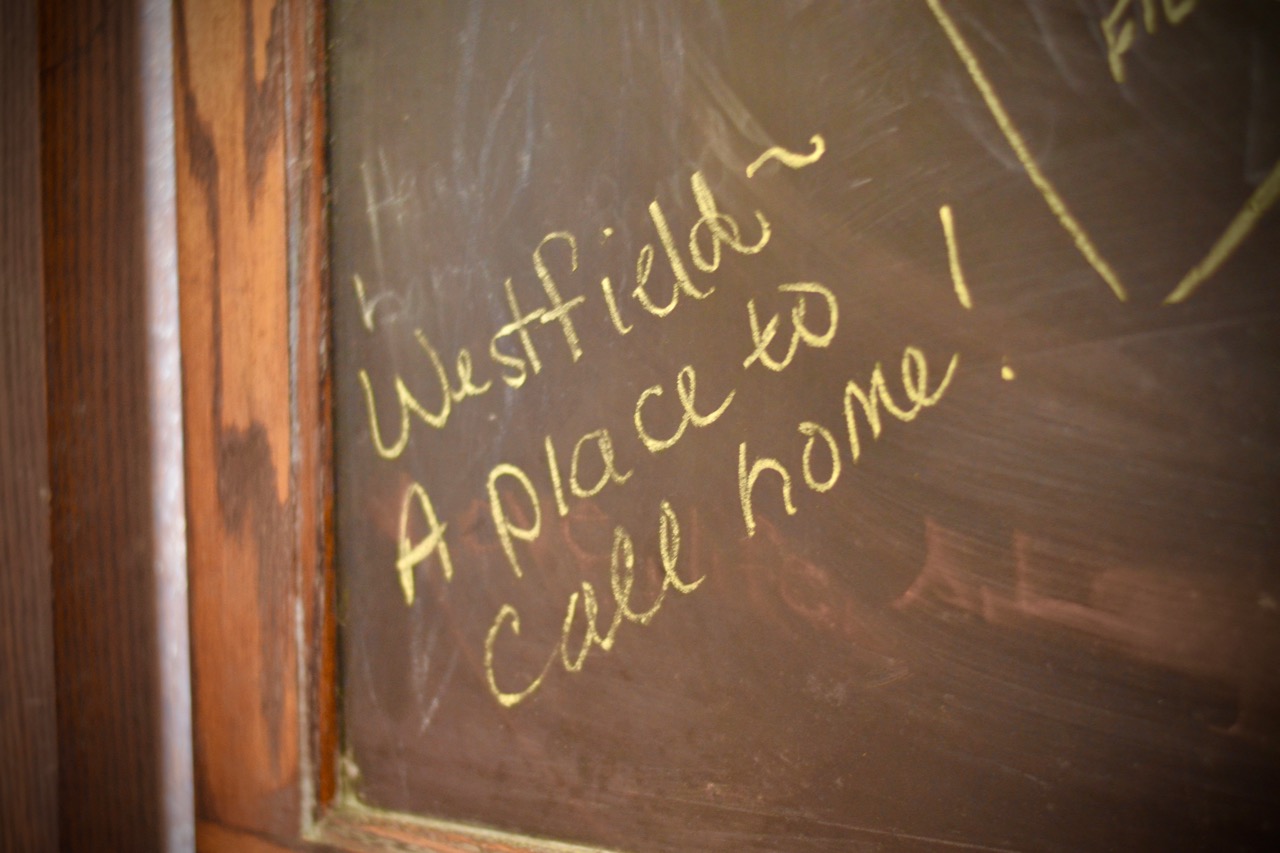 Westfield ~
A place to
call home!